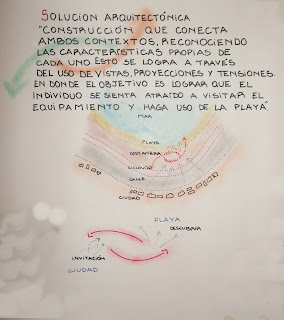 SOLUCION ARQUITECTÓNICA
"CONSTRUCCIÓN QUE CONECTA
AMBOS CONTEXTOS, RECONOCIENDO
LAS CARACTERÍSTICAS PROPIAS DE
CADA UNO. ESTO SE LOGRA A TRAVÉS
DEL USO DE VISTAS, PROYECCIONES Y TENSIONES.
EN DONDE EL OBJETIVO ES LOGRAR QUE EL
INDIVIDUO SE SIENTA ATRAÍDO A VISITAR EL
EQUIPAMIENTO Y HAGA USO DE LA PLAYA."
MAR
PLAYA
COSTANERA
CICLOVÍA
CALLE
CIUDAD
PLAYA
DESCUBRIR
INVITACIÓN
CIUDAD